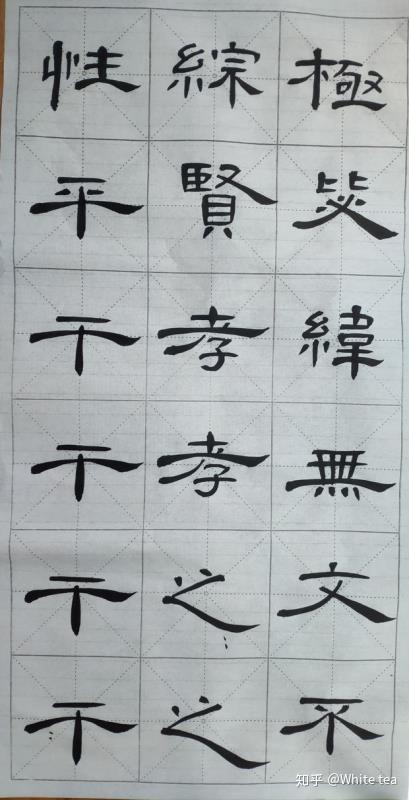 極毖緯無文不
綜賢孝孝之之
性平干干干干
知乎 @White tea